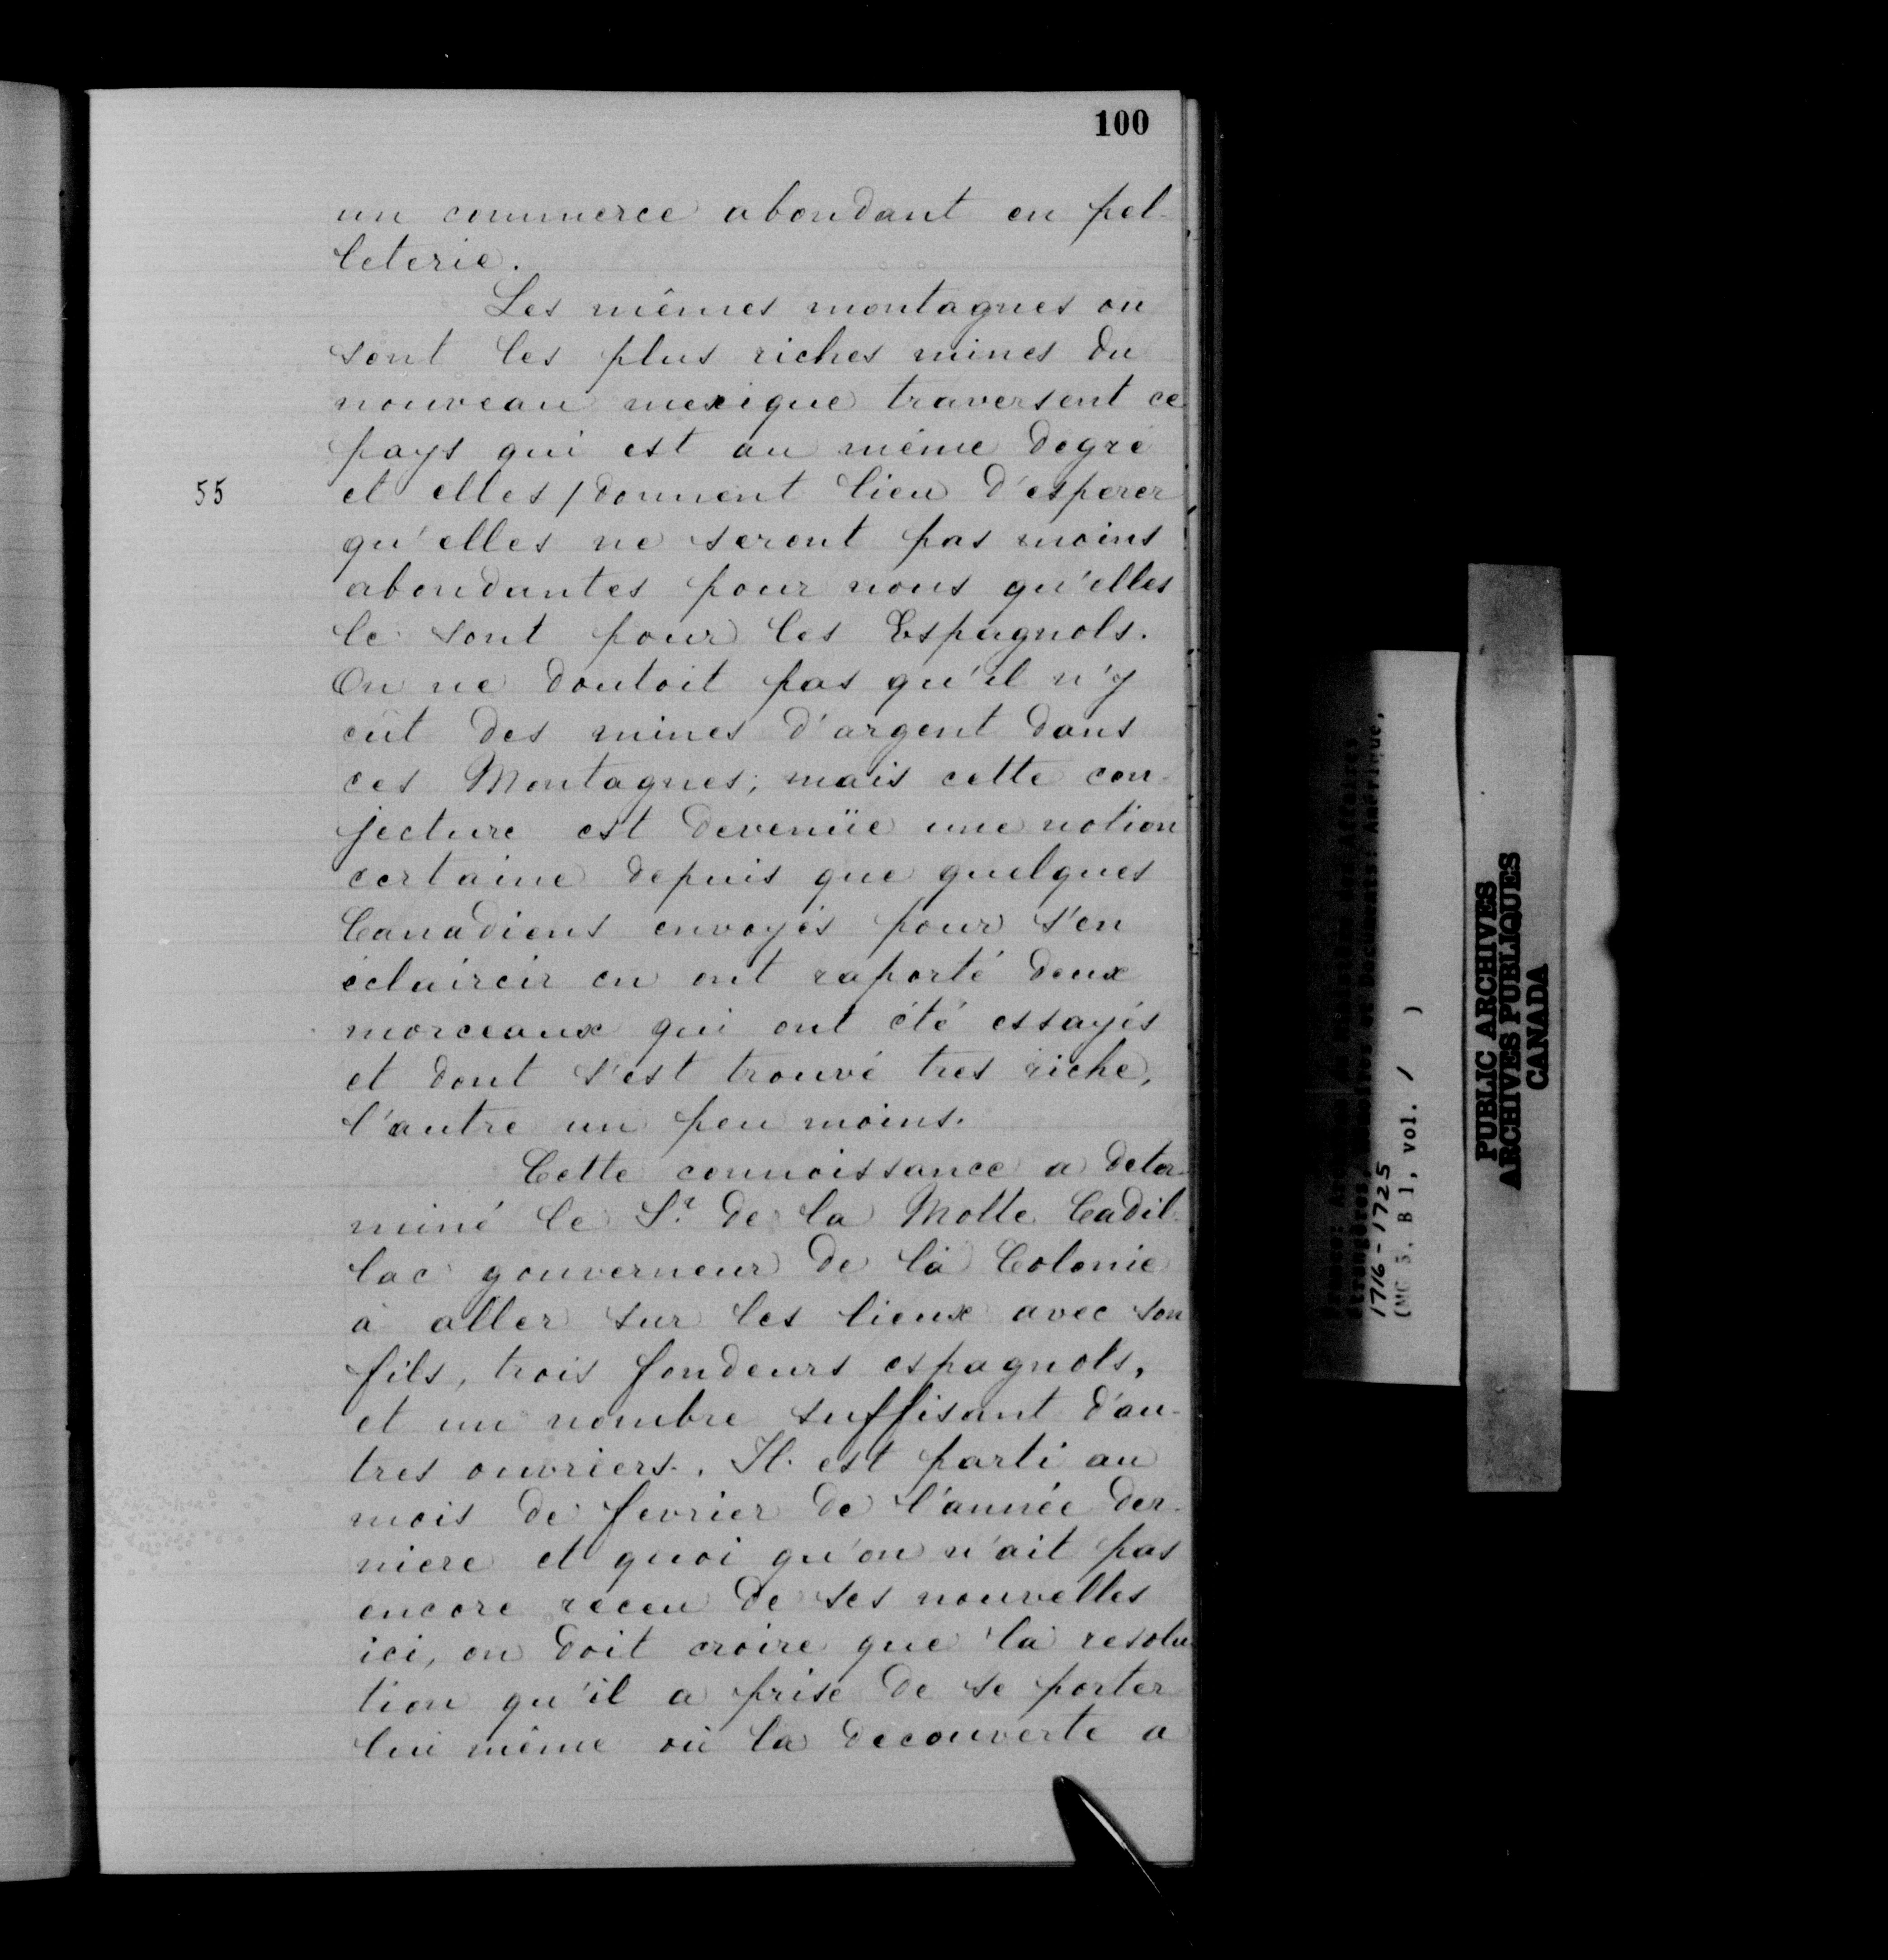 100
un commerce abondant en pel-
leterie.
Les mêmes montagnes où
sont les plus riches mines du
nouveau mexique traversent ce
pays qui est au même dégré
55 et elles / donnent lieu d'esperer
qu'elles ne seront pas moins
abondantes pour nous qu'elles
le sont pour les Espagnols.
On ne doutoit pas qu'il n'y
eût des mines d'argent dans
ces Montagnes; mais cette con-
jecture est devenüe une notion
certaine depuis que quelques
Canadiens envoyés pour s'en
éclaircir en ont raporté deux
morceaux qui ont été essayés
et dont s'est trouvé tres riche,
l'autre un peu moins.
Cette connoissance a deter-
miné le Sr. de la Motte Cadil-
lac gouverneur de la Colonie
à aller sur les lieux avec son
fils, trois fondeurs espagnols,
et un nombre suffisant d'au-
tres ouvriers. Il est parti au
mois de fevrier de l'année der-
niere et quoi qu'on n'ait pas
encore receu de ses nouvelles
ici, on doit croire que la resolu-
tion qu'il a prise de se porter
lui même où la decouverte a
1716-1725
(MG 5, B 1, vol. 1 )
PUBLIC ARCHIVES
ARCHIVES PUBLIQUES
CANADA